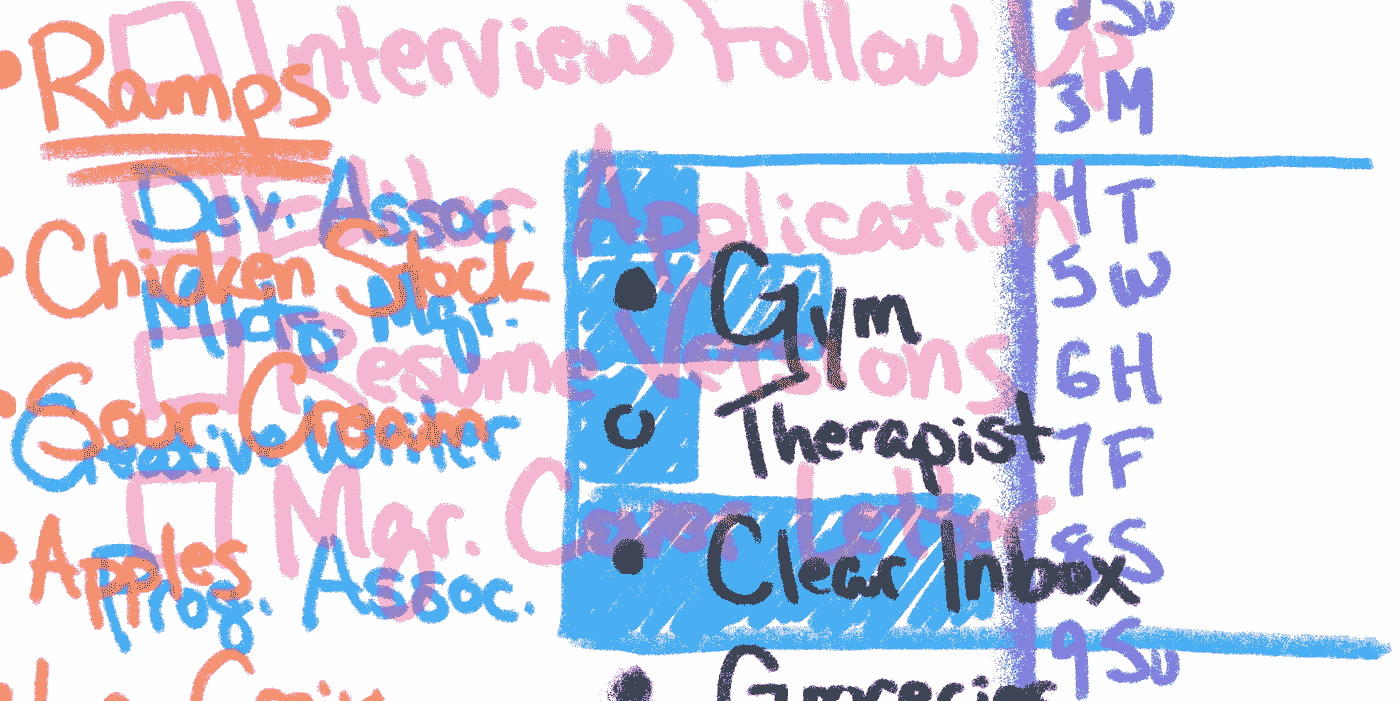 Interview Follow Up
Editor Application
Resume Versions
Mgr. Cover Letter
Ramps
Chicken Stock
Sour Cream
Apples
Dev. Assoc.
Mktg. Mgr.
Creative Writer
Prog. Assoc.
Gym
Therapist
Clear Inbox
Groceries
2 Su
3 M
4 T
5 W
6 H
7 F
8 S
9 Su